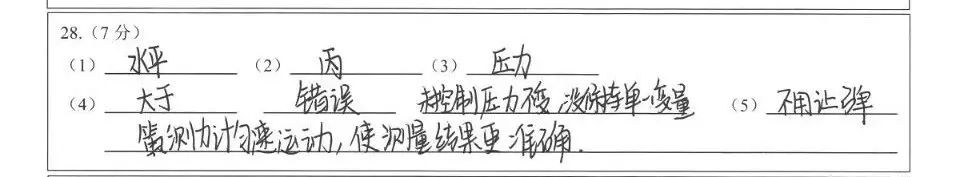 28.（7 分）
（1） 水平 （2） 丙 （3） 压力
（4） 大于 错误 未控制压力不变，没保持单一变量 （5） 不用让弹
簧测力计匀速运动，使测量结果更准确.